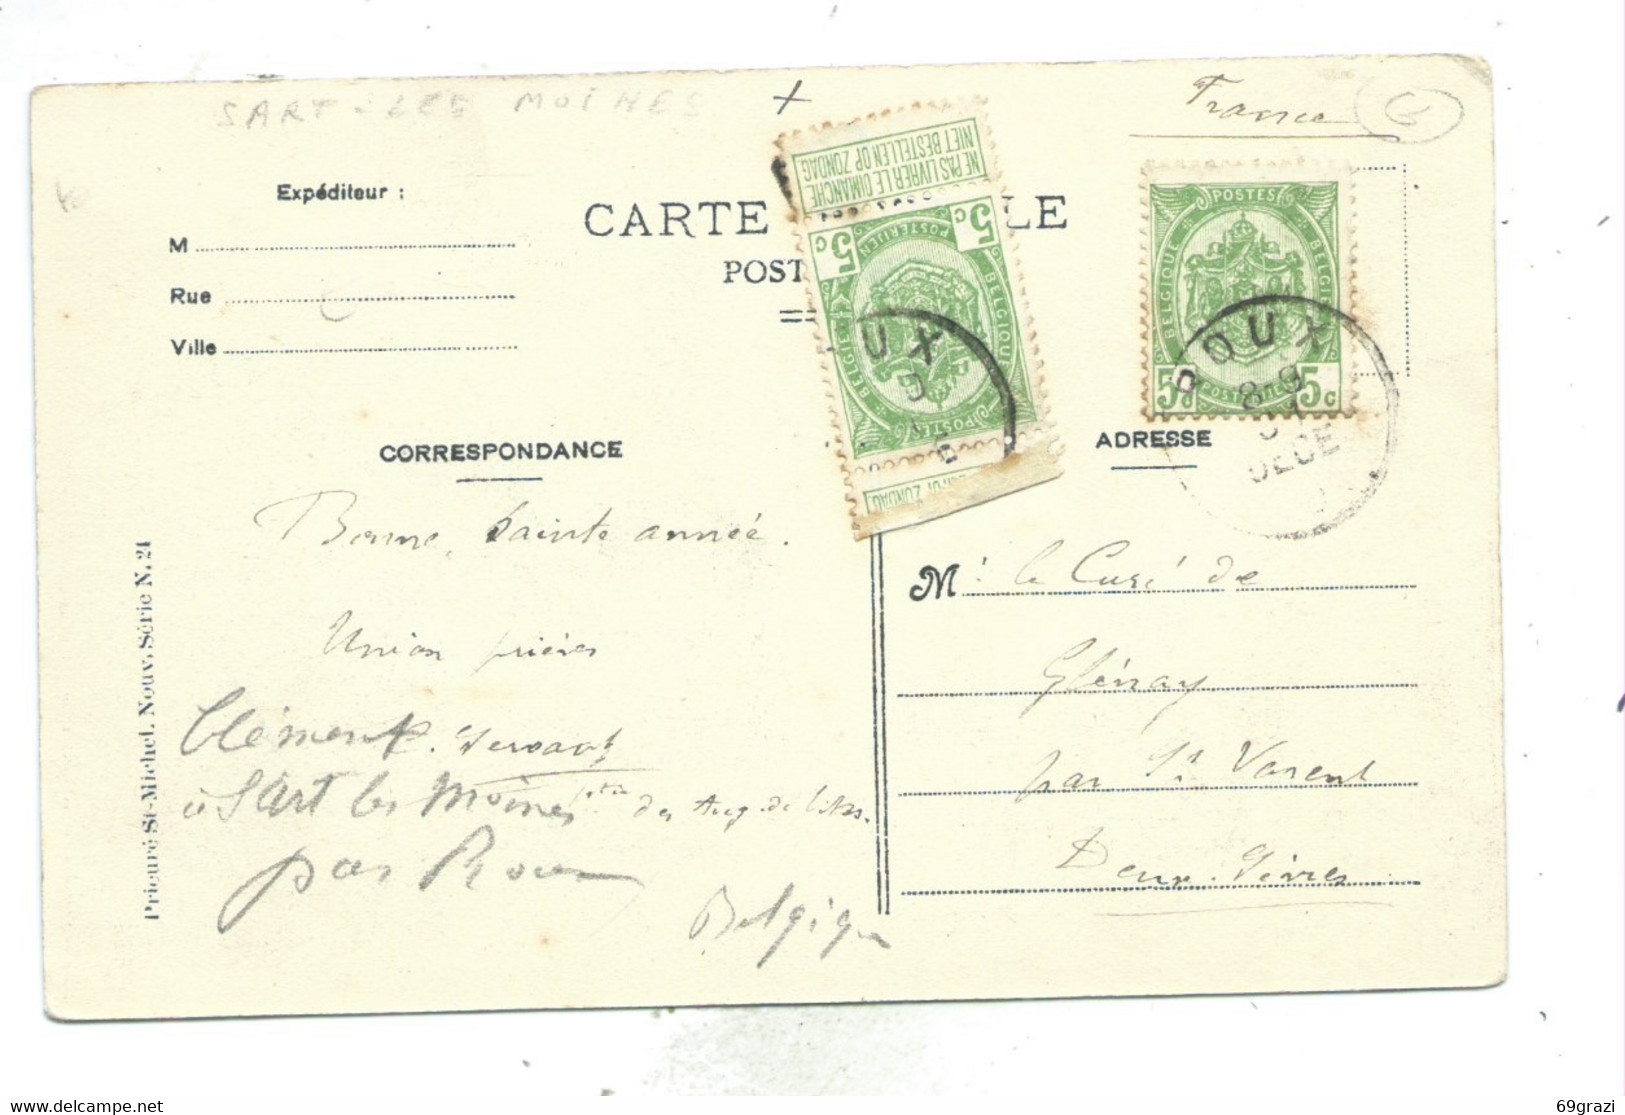 SART-LES MOINES
+
France
Expéditeur :
M
Rue
Ville
CARTE LE
POST
NE PAS LIVRER LE DIMANCHE
NIET BESTELLEN OP ZONDAG
5c POSTERIJEN 5c
BELGIE BELGIQUE
POSTES
ZONDAG
UX
POSTES
BELGIQUE BELGIE
5c POSTERIJEN 5c
OUX
8-9
DECE
CORRESPONDANCE
ADRESSE
Bonne, Sainte année.
Union prières
Clément. Servant
à Sart les Moines des Aug. de l'Ass.
par Roux
Belgique
M. le Curé de
Glénay
par St Varent
Deux-Sèvres
Prieuré St-Michel. Nouv. Série N. 21
69grazi